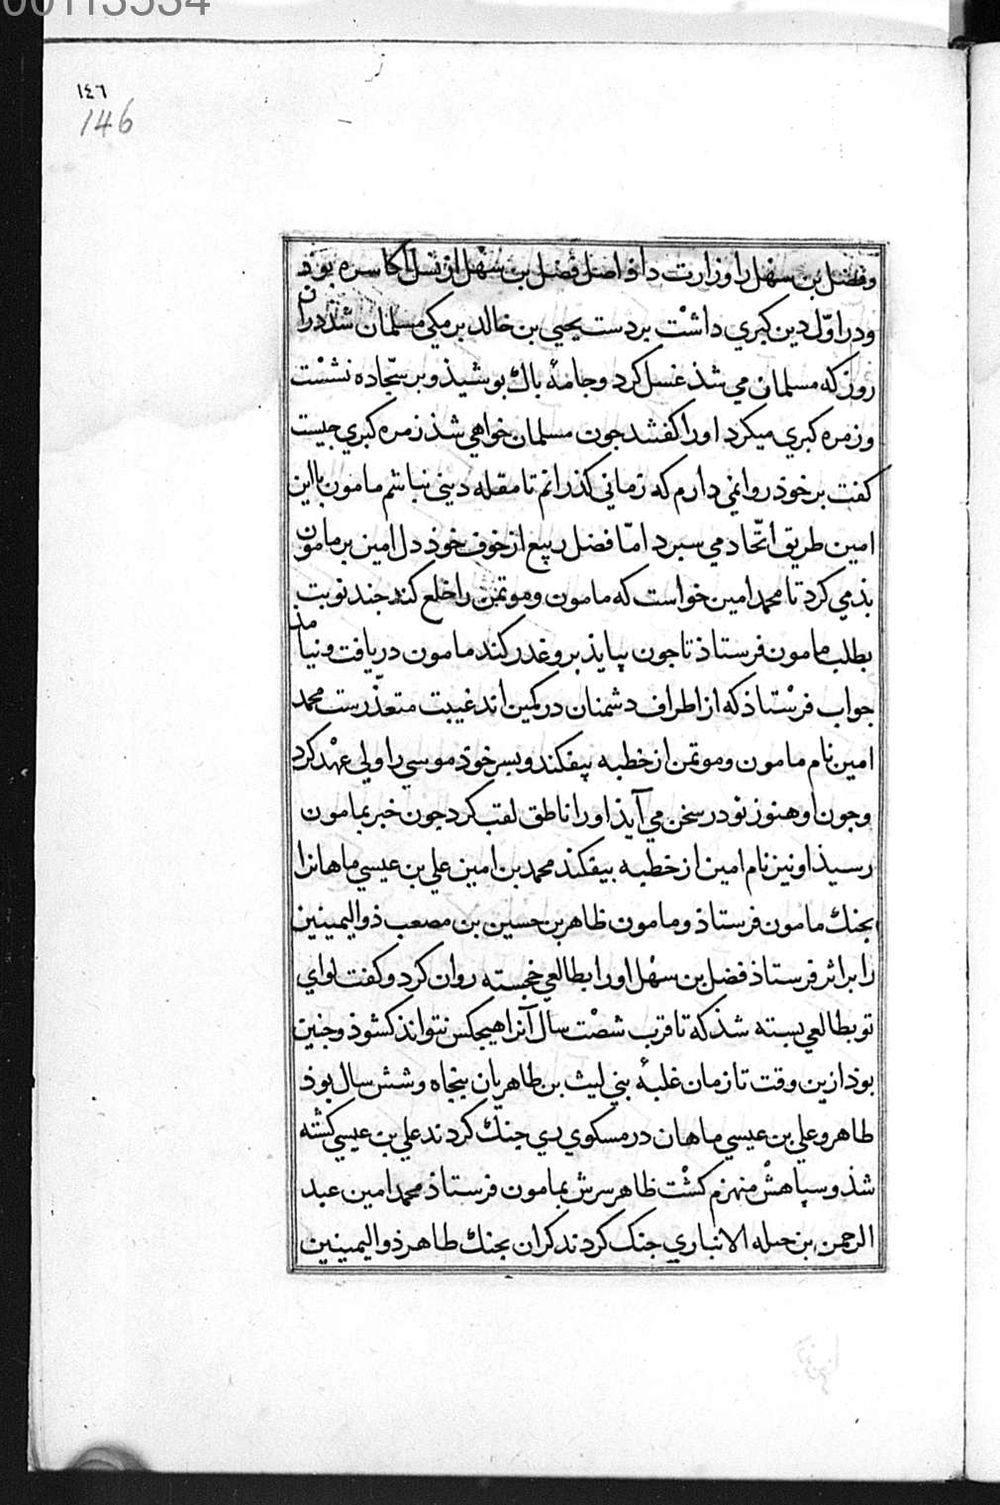 00113534
١٤٦
146
وفضل بن سهل را وزارت داذ اصل فضل بن سهل از نسل اكاسره بوذ
ودر اوّل دين كبري داشت بر دست يحيي بن خالد برمكي مسلمان شذ دران
روز كه مسلمان مي شذ غسل كرد وجامهٔ باك بوشيذ وبر سجّاده نشست
وزمزه كبري ميكرد اورا كفتند جون مسلمان خواهي شذ زمزه كبري جيست
كفت بر خوذ روا نمي دارم كه زماني كذرانم تا مقله ديني نباشم مامون با اين
امين طريق اتّحاد مي سبرد امّا فضل ربيع از خوف خوذ دل امين بر مامون
بذ مي كرد تا محمد امين خواست كه مامون وموتمن را خلع كند جند نوبت
بطلب مامون فرستاذ تا جون بيايذ برو غدر كند مامون دريافت ونيامذ
جواب فرستاذ كه از اطراف دشمنان در كمين اند غيبت متعذّرست محمد
امين نام مامون وموتمن از خطبه بيفكند وبسر خوذ موسي را ولي عهد كرد
وجون او هنوز نو در سخن مي آيذ اورا ناطق لقب كرد جون خبر بمامون
رسيذ او نيز نام امين از خطبه بيفكند محمد بن امين علي بن عيسي ماهانرا
بجنك مامون فرستاذ ومامون طاهر بن حسين بن مصعب ذو اليمينين
را برابر فرستاذ فضل بن سهل اورا بطالعي خجسته روان كرد وكفت لواي
تو بطالعي بسته شذ كه تا قرب شصت سال آنرا هيجكس نتواند كشوذ وجنين
بوذ ازين وقت تا زمان غلبهٔ بني ليث بن طاهريان بنجاه وشش سال بوذ
طاهر وعلي بن عيسي ماهان در مسكوي ري جنك كردند علي بن عيسي كشته
شذ وسپاهش منهزم كشت طاهر سرش بمامون فرستاذ محمد امين عبد
الرحمن بن جبله الانباري جنك كردند كران بجنك طاهر ذو اليمينين